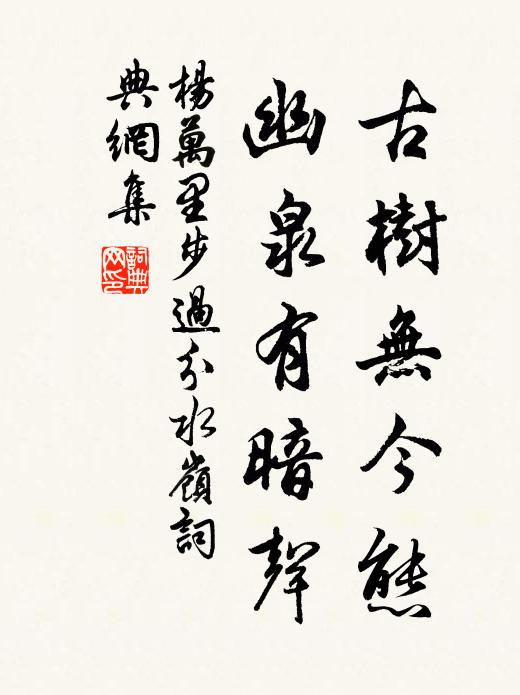 古樹無今態
幽泉有暗聲
楊萬里步過分水嶺詞
典網集
詞典
网印